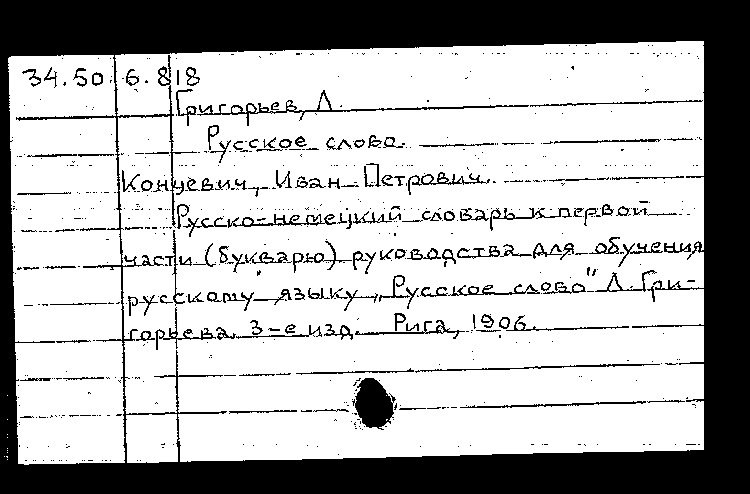 34.50.6.818
Григорьев, Л.
Русское слово.
Концевич, Иван Петрович.
Русско-немецкий словарь к первой
части (букварю) руководства для обучения
русскому языку „Русское слово" Л. Гри-
горьева. 3-е изд. Рига, 1906.